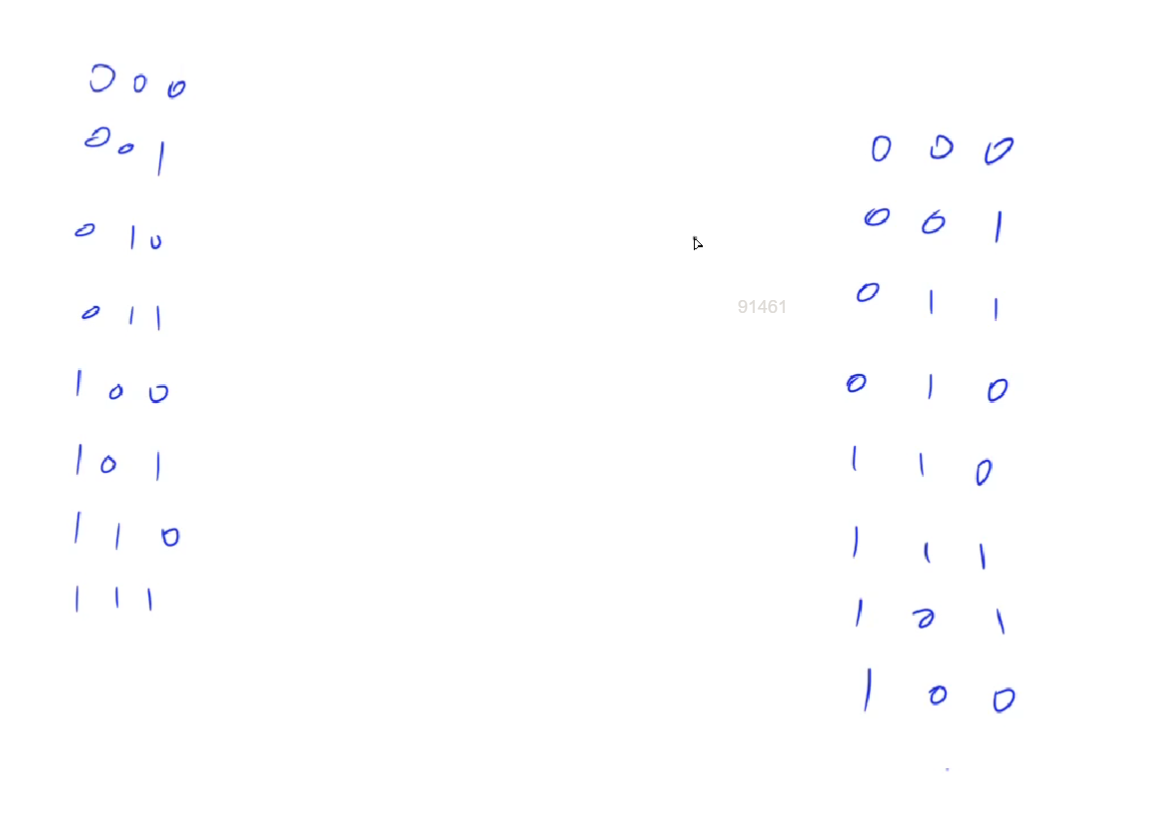 0 0 0
0 0 1
0 1 0
0 1 1
1 0 0
1 0 1
1 1 0
1 1 1
91461
0 0 0
0 0 1
0 1 1
0 1 0
1 1 0
1 1 1
1 0 1
1 0 0